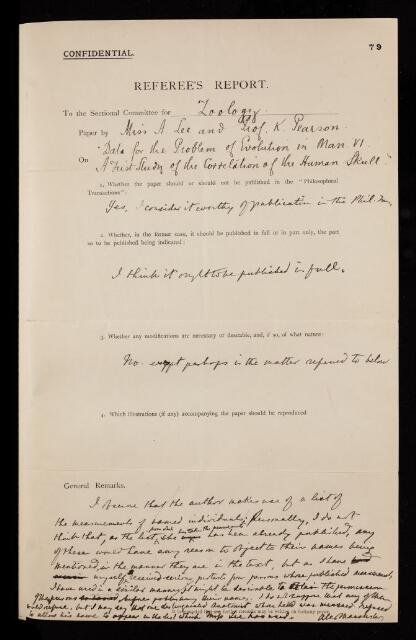 CONFIDENTIAL.
79
REFEREE'S REPORT.
To the Sectional Committee for Zoology
Paper by Miss A Lee and Prof. K. Pearson
"Data for the Problem of Evolution in Man VI.
On A First Study of the Correlation of the Human Skull"
1. Whether the paper should or should not be published in the "Philosophical
Transactions":
Yes, I consider it worthy of publication in the Phil. Trans.
2. Whether, in the former case, it should be published in full or in part only, the part
so to be published being indicated:
I think it ought to be published in full.
3. Whether any modifications are necessary or desirable, and, if so, of what nature:
No. except perhaps in the matter referred to below
4. Which illustrations (if any) accompanying the paper should be reproduced
General Remarks.
I observe that the author makes use of a list of
the measurements of named individuals; Personally, I do not
think that, as the list has been already published, any
of these would have any reason to object to their names being
mentioned in the manner they are in the text, but as I have
myself received protests from persons whose published measurements
I have used in a similar manner, it might be desirable to the permission
of the persons before publishing their names. I do not suppose that any of them
would refuse, but I may say that one distinguished anatomist whose head was measured refused
to allow his name to appear in the list which Miss Lee has used.
Alex Macalister